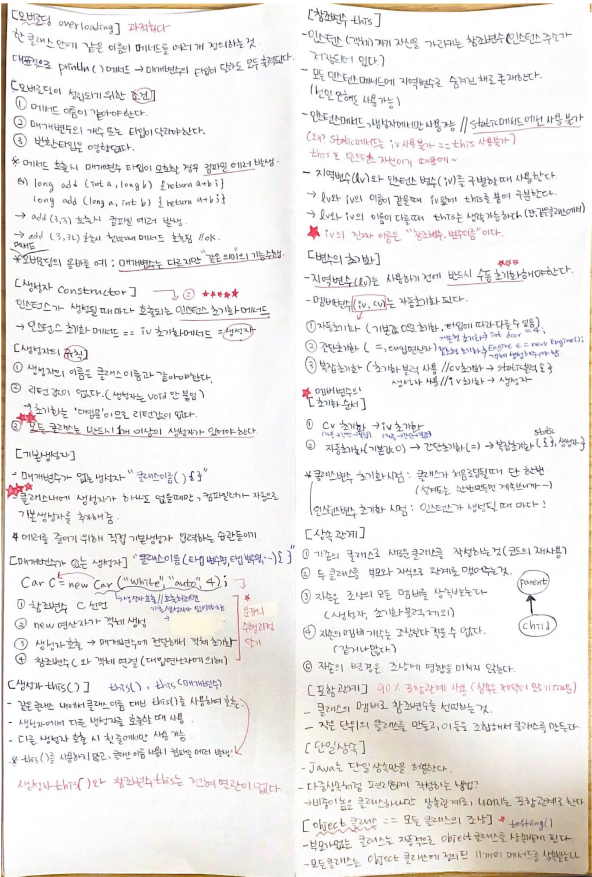 [오버로딩 overloading] 과적하다
한 클래스 안에 같은 이름의 메서드를 여러 개 정의하는 것.
대표적으로 println() 메서드 → 매개변수의 타입이 달라도 모두 출력된다.
[오버로딩이 성립되기 위한 조건]
① 메서드 이름이 같아야한다.
② 매개변수의 개수 또는 타입이 달라야한다.
③ 반환타입은 영향없다.
※ 메서드 호출시 매개변수 타입이 모호할 경우 컴파일 에러 발생.
ex) long add (int a, long b) { return a+b; }
long add (long a, int b) { return a+b; }
→ add (3,3) 호출시 컴파일 에러 발생.
→ add (3, 3L) 호출시 첫번째 메서드 호출됨 // OK.
메서드
※ 오버로딩의 올바른 예 : 매개변수는 다르지만 "같은 의미"의 기능수행.
[생성자 constructor]
인스턴스가 생성될 때마다 호출되는 인스턴스 초기화 메서드
→ 인스턴스 초기화 메서드 == iv 초기화 메서드 = 생성자
[생성자의 규칙]
① 생성자의 이름은 클래스 이름과 같아야한다.
② 리턴값이 없다. (생성자는 void 안 붙임)
→ 초기화는 '대입문'이므로 리턴값이 없다.
③ 모든 클래스는 반드시 1개 이상의 생성자가 있어야 한다.
[기본생성자]
- 매개변수가 없는 생성자 "클래스이름() { }"
- 클래스내에 생성자가 하나도 없을때만, 컴파일러가 자동으로
기본생성자를 추가해 줌.
에러를 줄이기 위해 직접 기본생성자 입력하는 습관들이기
[매개변수가 있는 생성자] "클래스이름 (타입 변수명, 타입 변수명, ~) { }"
Car C = new Car ("White", "auto", 4);
① 참조변수 C 선언
② new 연산자가 객체 생성
③ 생성자호출 → 매개변수에 전달해서 객체 초기화
④ 참조변수 C와 객체 연결 (대입연산자에 의해)
[생성자 this()] this(), this(매개변수)
- 같은 클래스 내에서 클래스 이름 대신 this()를 사용하여 호출.
- 생성자에서 다른 생성자를 호출할 때 사용
- 다른 생성자 호출 시 첫 줄에서만 사용 가능
※ this()를 사용하지 않고, 클래스 이름 사용시 컴파일 에러 발생!
생성자 this()와 참조변수 this는 전혀 연관이 없다
[참조변수 this]
- 인스턴스 (객체) 자기 자신을 가리키는 참조변수 (인스턴스 주소가
저장되어 있다.)
- 모든 인스턴스 메서드에 지역변수로 숨겨진 채로 존재한다.
(선언 안해도 사용가능)
- 인스턴스메서드, 생성자에서만 사용가능 // static메서드에선 사용 불가
(왜? static메서드는 iv 사용불가 == this 사용불가)
this는 인스턴스 자신이기 때문에~
- 지역변수(lv)와 인스턴스 변수(iv)를 구별할 때 사용한다.
→ lv와 iv의 이름이 같을때 iv 앞에 this를 붙여 구분한다.
→ lv와 iv의 이름이 다를 때 this는 생략가능하다
iv의 진짜 이름은 "참조변수.변수이름"이다.
[변수의 초기화]
- 지역변수(lv)는 사용하기 전에 반드시 수동 초기화해야한다.
- 멤버변수 (iv, cv)는 자동초기화 된다.
① 자동초기화 (기본값 0으로 초기화, 타입에 따라 다를 수 있음)
② 간단초기화 ( =, 대입연산자)
③ 복잡초기화 (초기화 블럭 사용 // cv초기화 → static블럭 { }
생성자 사용 // iv초기화 → 생성자
멤버변수의
[초기화 순서]
① CV 초기화 → iv 초기화
② 자동초기화 (기본값 0) → 간단초기화 (=) → 복잡초기화 (static { }, 생성자)
※ 클래스변수 초기화시점 : 클래스가 처음로딩될때 단 한번
인스턴스변수 초기화 시점 : 인스턴스가 생성될 때 마다!
[상속관계]
① 기존의 클래스로 새로운 클래스를 작성하는 것 (코드의 재사용)
② 두 클래스를 부모와 자식으로 관계를 맺어주는 것.
③ 자손은 조상의 모든 멤버를 상속받는다
(생성자, 초기화블럭 제외)
parent
child
④ 자손의 멤버 개수는 조상보다 적을 수 없다.
(같거나 많다)
⑤ 자손의 변경은 조상에 영향을 미치지 않는다.
[포함관계] 90% 포함관계 사용
- 클래스의 멤버로 참조변수를 선언하는 것.
- 작은 단위의 클래스를 만들고, 이들을 조합해서 클래스를 만든다
[단일상속]
- Java는 단일 상속만을 허용한다.
→ 비중이 높은 클래스 하나만 상속관계로, 나머지는 포함관계로 한다
[Object 클래스 == 모든 클래스의 조상] toString()
- 부모가 없는 클래스는 자동적으로 Object 클래스를 상속받게 된다
- 모든 클래스는 Object 클래스에 정의된 11개의 메서드를 상속받는다